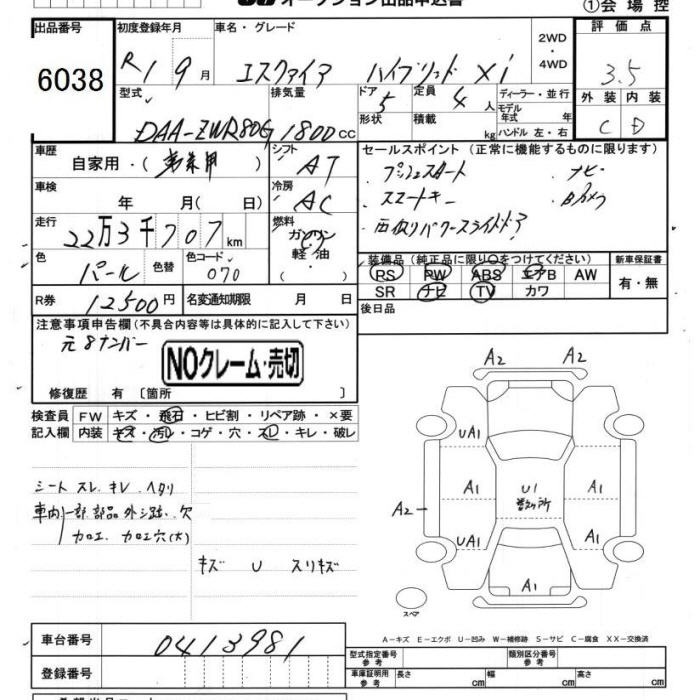 オークション出品申込書
①会場控
出品番号
6038
初度登録年月
R1 9月
車名・グレード
エスクァイア ハイブリッド Xi
2WD
・
4WD
評価点
3.5
外装 内装
C D
型式
DAA-ZWR80G
排気量
1800cc
ドア 5
形状
定員 人
積載 kg
ディーラー・並行
モデル年式 年
ハンドル 左・右
車歴
自家用・( )
シフト
AT
車検
年 月( 日)
冷房
AC
走行
22万3千707km
燃料
ガソリン
軽油・
( )
色
パール
色替
色コード
070
R券
12500円
名変通知期限 月 日
セールスポイント(正常に機能するものに限ります)
・プッシュスタート ・ナビ
・スマートキー ・Bカメラ
・両側パワースライドドア
装備品(純正品に限り○をつけてください)
PS PW ABS エアB AW
SR ナビ TV カワ
新車保証書
有・無
後日品
注意事項申告欄(不具合内容等は具体的に記入して下さい)
元8ナンバー
NOクレーム・売切
修復歴 有〔箇所 〕
検査員記入欄
FW キズ・飛石・ヒビ割・リペア跡・×要
内装 キズ・汚レ・コゲ・穴・スレ・キレ・破レ
シート スレ.キレ.ヘタリ
車内一部部品外シ跡.欠
カロエ.カロエ穴(大)
キズ U スリキズ
A2 A2
UA1
A1 U1 A1
A2
UA1 A1
A1
スペア
A-キズ E-エクボ U-凹み W-補修跡 S-サビ C-腐食 XX-交換済
車台番号
0413981
登録番号
型式指定番号
参考
類別区分番号
参考
車庫証明用
参考
長さ cm 幅 cm 高さ cm